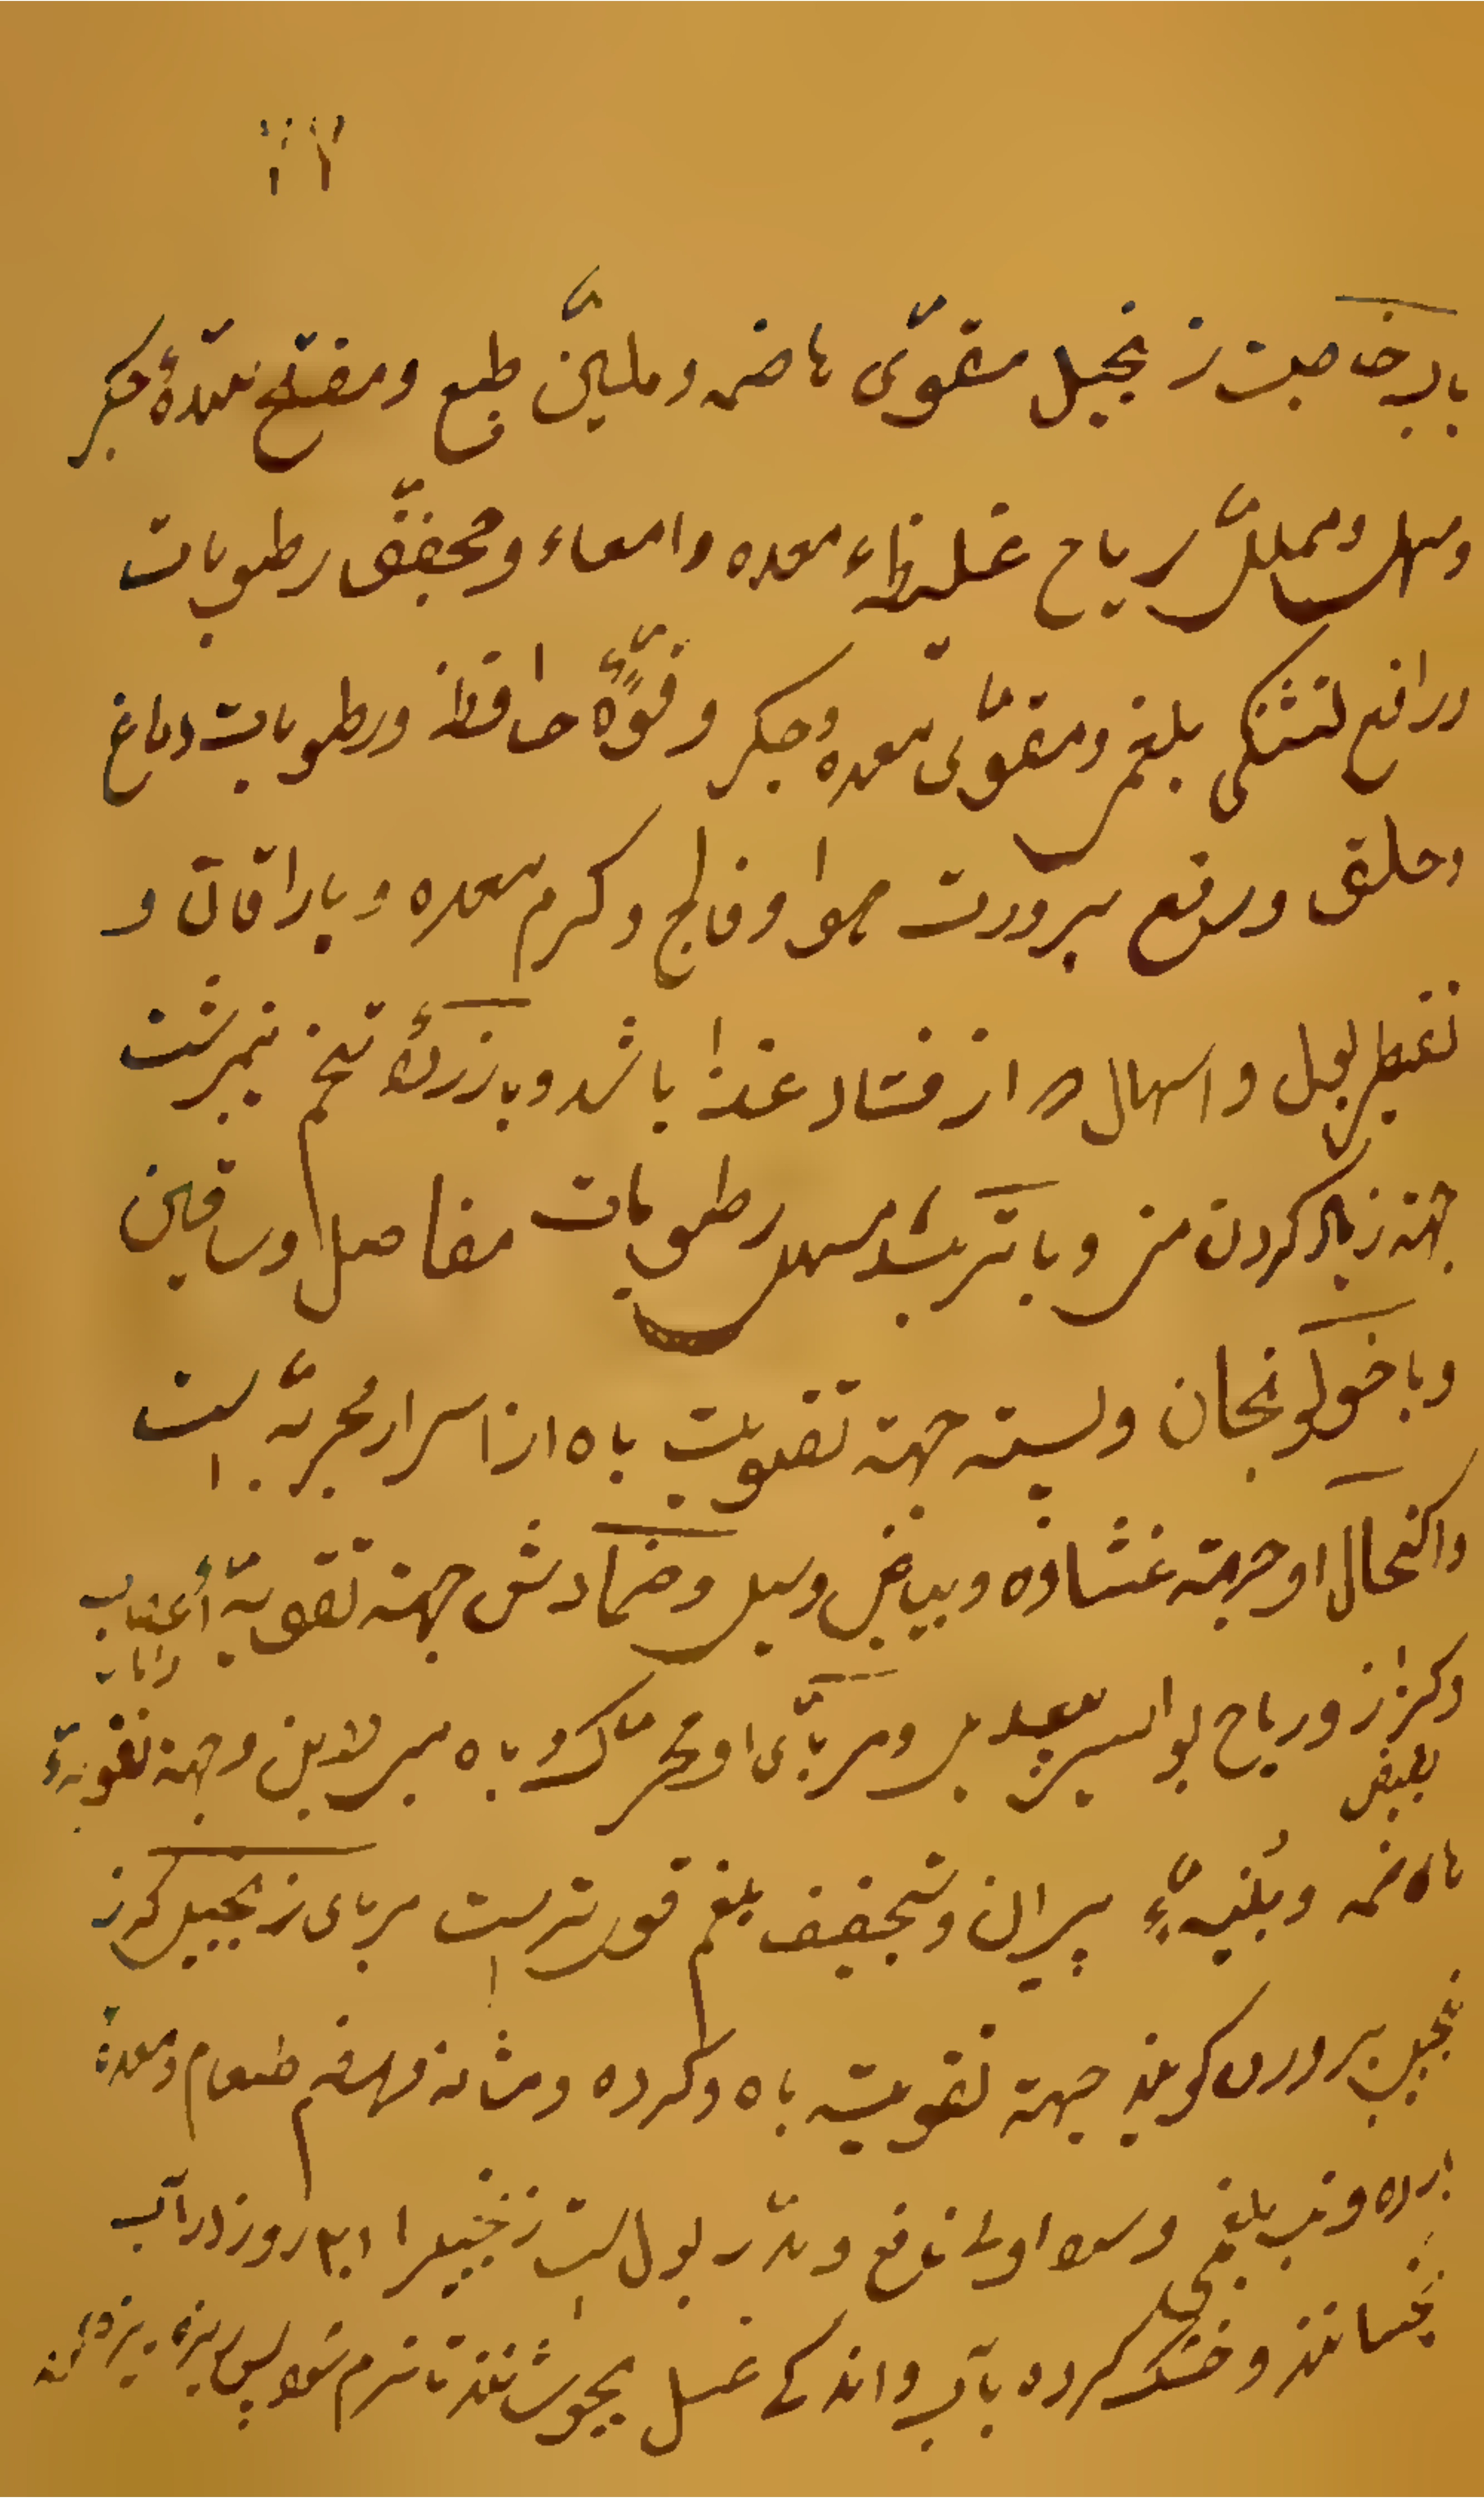 باب خاصیت زنجبیل مقوّی هاضمه و ملیّن طبع و مفتّح سدّهٔ جگر
و مسهل و محلّل ریاح غلیظهٔ معده و امعاء و مجفّف رطوبات
و رافع تشنگی بلغم و مقوّی معده و جگر و قوّهٔ حافظه و رطوبات دماغ
و حلق و رفع برودت هوا و فالج و کرم معده و
تقطیر بول و اسهال که از فساد غذا باشد و با زردهٔ تخم نیمبرشت
جهته زیاد کردن منی و با تربد مسهل رطوبات مفاصل و ساقین
و با خولنجان و پسته جهته تقویت باه از اسرار مجرّبه است
و اکتحال او جهته غشاوه و بیاض و سبل و ضمادش جهته تقویة اعصاب
و کزاز و ریاح بواسیر و مربّای او محرّک باه مبرودین و جهته تقویة
هاضمه و بنیهٔ پیران و تجفیف بلغم قویتر است مربای زنجبیل کز
زنجبیل پرورده گویند جهته تقویت باه و گرده و مثانه و هضم طعام و معدهٔ
بارده و تب بلغمی و نافع و مدرّ بول است زنجبیل را روز در آب
بخیسانند و خشک کرده باب و اندکی عسل بجوشانند تا نرم شود پس